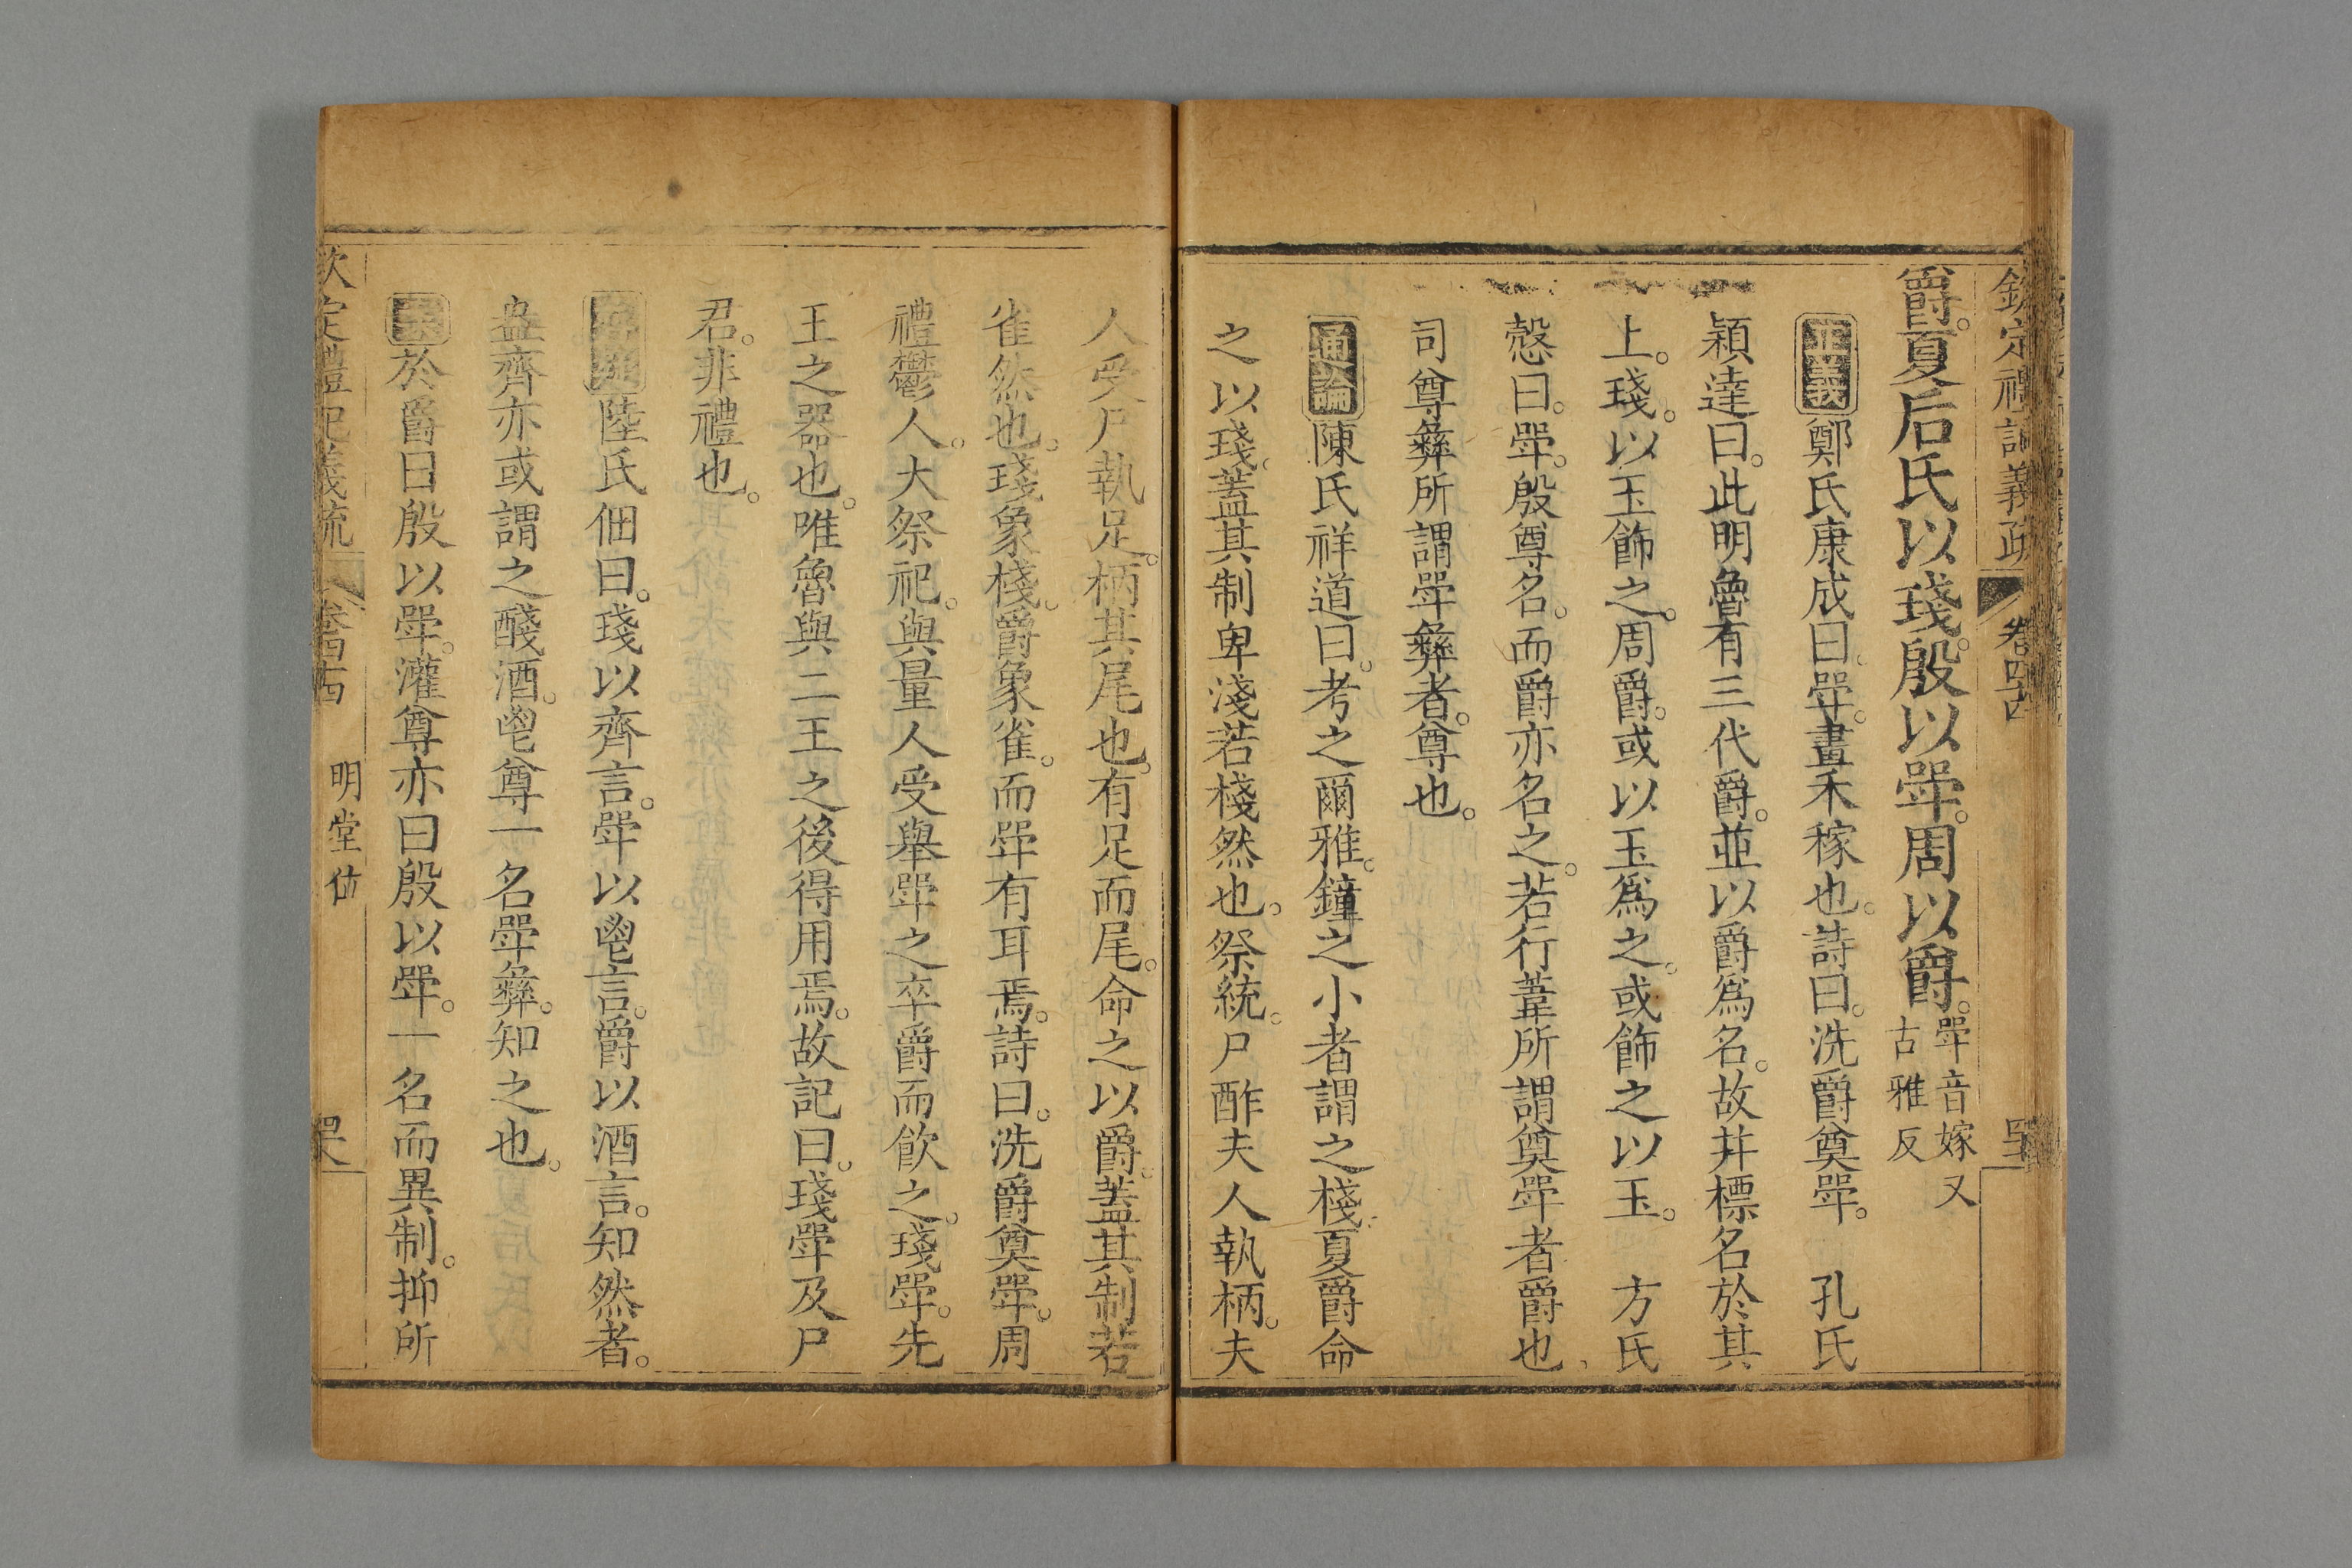 欽定禮記義疏 卷四十四
爵。夏后氏以琖。殷以斝。周以爵。斝音嫁又古雅反
正義鄭氏康成曰。斝。畫禾稼也。詩曰。洗爵奠斝。 孔氏
穎達曰。此明魯有三代爵。並以爵爲名。故并標名於其
上。琖。以玉飾之。周爵。或以玉爲之。或飾之以玉。 方氏
慤曰。斝。殷尊名。而爵亦名之。若行葦所謂奠斝者爵也
司尊彝所謂斝彝者。尊也。
通論陳氏祥道曰。考之爾雅。鐘之小者謂之棧。夏爵命
之以琖。蓋其制卑淺若棧然也。祭統。尸酢夫人執柄。夫
人受尸執足。柄其尾也。有足而尾。命之以爵。蓋其制若
雀然也。琖象棧。爵象雀。而斝有耳焉。詩曰。洗爵奠斝。周
禮鬱人。大祭祀。與量人受舉斝之卒爵而飲之。琖斝。先
王之器也。唯魯與二王之後得用焉。故記曰。琖斝及尸
君。非禮也。
陸氏佃曰。琖以齊言。斝以鬯言。爵以酒言。知然者。
盎齊亦或謂之醆酒。鬯尊一名斝彝。知之也。
案於爵曰殷以斝。灌尊亦曰殷以斝。一名而異制。抑所
欽定禮記義疏 卷四十四 明堂位